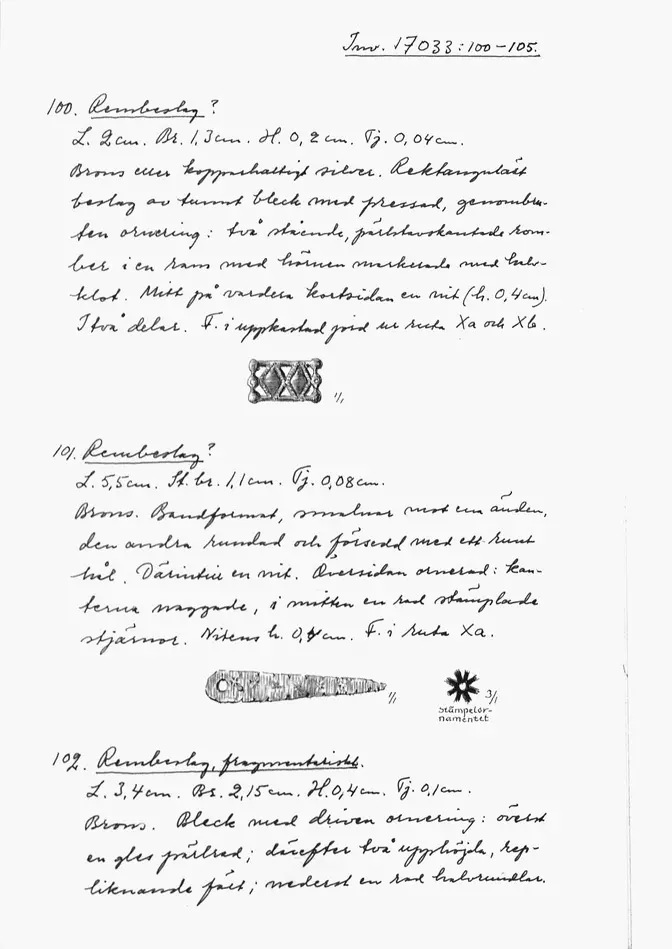 Inv. 17033:100–105.
100. Rembeslag?
L. 2cm. Br. 1,3cm. H. 0,2cm. Tj. 0,04cm.
Brons eller kopparhaltigt silver. Rektangulärt
beslag av tunnt bleck med pressad, genombru-
ten ornering: två stående, pärlstavskantade rom-
ber i en ram med hörnen markerade med halv-
klot. Mitt på vardera kortsidan en nit (h. 0,4cm).
I två delar. F. i uppkastad jord ur ruta Xa och Xb.
1/1
101. Rembeslag?
L. 5,5cm. St. br. 1,1cm. Tj. 0,08cm.
Brons. Bandformat, smalnar mot ena änden,
den andra rundad och försedd med ett runt
hål. Därintill en nit. Översidan ornerad: kan-
terna naggade, i mitten en rad stämplade
stjärnor. Nitens h. 0,4cm. F. i ruta Xa.
1/1
3/1
stämpelor-
namentet
102. Rembeslag, fragmentariskt.
L. 3,4cm. Br. 2,15cm. H. 0,4cm. Tj. 0,1cm.
Brons. Bleck med driven ornering: överst
en gles pärlrad; därefter två upphöjda, rep-
liknande fält; nederst en rad halvrundlar.